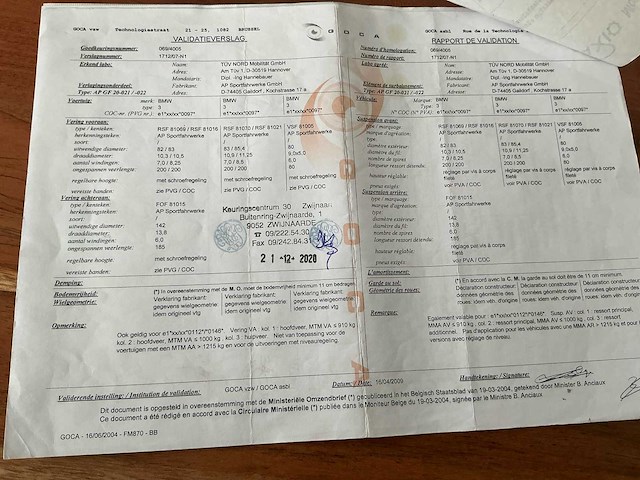 GOCA vzw Technologiestraat 21 - 25, 1082 BRUSSEL
VALIDATIEVERSLAG
Goedkeuringsnummer: 069/4005
Verslagnummer: 1712/07-N1
Erkend labo: Naam: TÜV NORD Mobilität GmbH
Adres: Am Tüv 1, D-30519 Hannover
Mandataris: Dipl. -Ing Hannebauer
Verlagingsonderdeel: Fabrikant: AP Sportfahrwerke GmbH
Type: AP GF 20-821 / -022 Adres: D-74405 Gaildorf, Kochstrasse 17 a
Voertuig: merk: BMW BMW BMW
Type: 3 3 3
COC-nr. (PVG nr.): e1*xx/xx*0097* e1*xx/xx*0097* e1*xx/xx*0097*
Vering vooraan:
type / kenteken: RSF 81069 / RSF 81016 RSF 81070 / RSF 81021 VSF 81005
herkenningsteken AP Sportfahrwerke AP Sportfahrwerke AP Sportfahrwerke
soort: / / /
uitwendige diameter: 82 / 83 83 / 85,4 80
draaddiameter: 10,3 / 10,5 10,9 / 11,25 9,0x5,0
aantal windingen: 7,0 / 8,25 7,0 / 8,25 2,0
ongespannen veerlengte: 200 / 200 200 / 200 80
regelbare hoogte: met schroefregeling met schroefregeling met schroefregeling
vereiste banden: zie PVG / COC zie PVG / COC zie PVG / COC
Vering achteraan:
type / kenteken: FOF 81015
herkenningsteken: AP Sportfahrwerke
soort: /
uitwendige diameter: 142
draaddiameter: 13,8
aantal windingen: 6,0
ongespannen veerlengte: 185
regelbare hoogte: met schroefregeling
vereiste banden: zie PVG / COC
Keuringscentrum 30 Zwijnaarde
Buitenring-Zwijnaarde, 1
9052 ZWIJNAARDE
☎ 09/222.54.30
Fax 09/242.84.31
21 -12- 2020
Demping:
Bodemvrijheid: (*) In overeenstemming met de M. O. moet de bodemvrijheid minimum 11 cm bedragen
Wielgeometrie: Verklaring fabrikant: Verklaring fabrikant: Verklaring fabrikant:
gegevens wielgeometrie gegevens wielgeometrie gegevens wielgeometrie
idem origineel vtg idem origineel vtg idem origineel vtg
Opmerking:
Ook geldig voor e1*xx/xx*0112*/*0146* Vering VA : kol. 1 : hoofdveer, MTM VA ≤ 910 kg
kol. 2 : hoofdveer, MTM VA ≤ 1000 kg , kol. 3 : hulpveer. Niet van toepassing voor de
voertuigen met een MTM AA > 1215 kg en voor de uitvoeringen met niveauregeling
GOCA
GOCA asbl Rue de la Technologie
RAPPORT DE VALIDATION
Numéro d'homologation: 069/4005
Numéro de rapport: 1712/07-N1
Labo agréé: Nom: TÜV NORD Mobilität GmbH
Adresse: Am Tüv 1, D-30519 Hannover
Mandataire: Dipl. -Ing Hannebauer
Elément de surbaissement: Fabricant: AP Sportfahrwerke GmbH
Type: AP GF 20-821 / -022 Adresse: D-74405 Gaildorf, Kochstrasse 17 a
Véhicule: Marque: BMW BMW BMW
Type: 3 3 3
N° COC (N° PVA): e1*xx/xx*0097* e1*xx/xx*0097* e1*xx/xx*0097*
Suspension avant:
type / marquage RSF 81069 / RSF 81016 RSF 81070 / RSF 81021 VSF 81005
marque d'agréation: AP Sportfahrwerke AP Sportfahrwerke AP Sportfahrwerke
type: / / /
diamètre extérieur 82 / 83 83 / 85,4 80
diamètre du fil: 10,3 / 10,5 10,9 / 11,25 9,0x5,0
nombre de spires 7,0 / 8,25 7,0 / 8,25 2,0
longueur ressort détendu: 200 / 200 200 / 200 80
hauteur réglable: réglage par vis à corps fileté réglage par vis à corps fileté réglage par vis à corps fileté
pneus exigés voir PVA / COC voir PVA / COC voir PVA / COC
Suspension arrière:
type / marquage FOF 81015
marque d'agréation: AP Sportfahrwerke
type: /
diamètre extérieur 142
diamètre du fil: 13,8
nombre de spires 6,0
longueur ressort détendu: 185
hauteur réglable réglage par vis à corps fileté
pneus exigés voir PVA / COC
L'amortissement:
Garde au sol: (*) En accord avec la C. M. la garde au sol doit être de 11 cm minimum.
Géométrie des roues: Déclaration constructeur: Déclaration constructeur: Déclaration constructeur:
données géométrie des données géométrie des données géométrie des
roues: idem véh. d'origine roues: idem véh. d'origine roues: idem véh. d'origine
Remarque:
Egalement valable pour : e1*xx/xx*0112*/*0146* Susp. AV : col. 1 : ressort principal,
MMA AV ≤ 910 kg , col. 2 : ressort principal, MMA AV ≤ 1000 kg , col. 3 : ressort
additionnel. Pas d'application pour les véhicules avec une MMA AR > 1215 kg et pour les
versions avec réglage de niveau.
Validerende instelling: / Institution de validation: GOCA vzw / GOCA asbl Datum: / Date: 16/04/2009 Handtekening: / Signature:
Dit document is opgesteld in overeenstemming met de Ministeriële Omzendbrief (*) gepubliceerd in het Belgisch Staatsblad van 19-03-2004, getekend door Minister B. Anciaux
Ce document a été rédigé en accord avec la Circulaire Ministérielle (*) publiée dans le Moniteur Belge du 19-03-2004, signée par le Ministre B. Anciaux.
GOCA - 16/06/2004 - FM870 - BB